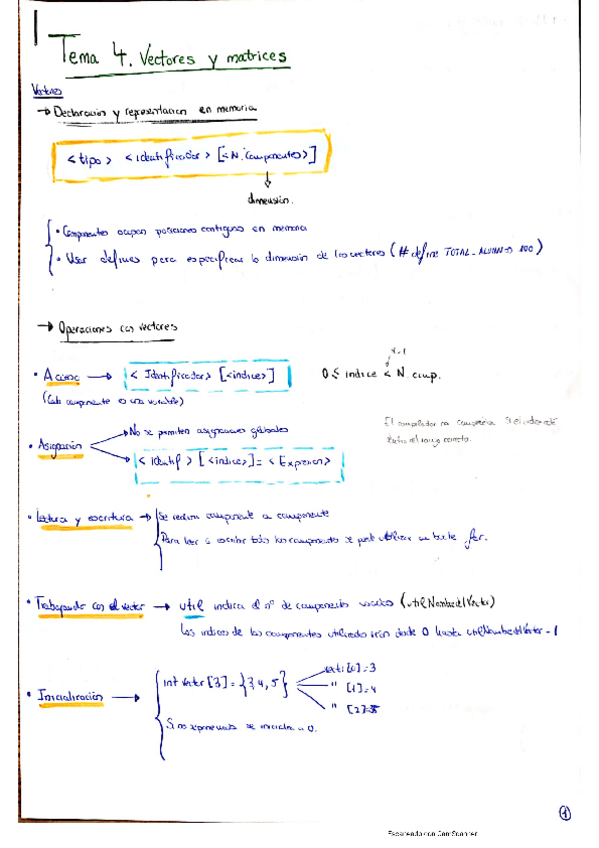 Tema 4. Vectores y matrices
Vectores
→ Declaración y representación en memoria
<tipo> <identificador> [<N. Componentes>]
dimensión.
• Componentes ocupan posiciones contiguas en memoria
• Usar defines para especificar la dimensión de los vectores (#define TOTAL_ALUMNOS 100)
→ Operaciones con vectores
• Acceso → <Identificador> [<indice>] 0 ≤ indice < N. comp.
(Cada componente es una variable)
El compilador no comprueba si el indice está
dentro del rango correcto.
• Asignación → No se permiten asignaciones globales
→ <identif> [<indice>] = <Expresion>
• Lectura y escritura → Se realiza componente a componente
Para leer o escribir todas las componentes se puede utilizar un bucle for.
• Trabajando con el vector → util indica el nº de componentes usados (utilNombredelVector)
Los indices de las componentes utilizadas irán desde 0 hasta utilNombredelVector - 1
• Inicialización → int vector[3] = {3, 4, 5}
[0]=3
" [1]=4
" [2]=5
Si no se inicializa a 0.
1
Escaneado con CamScanner